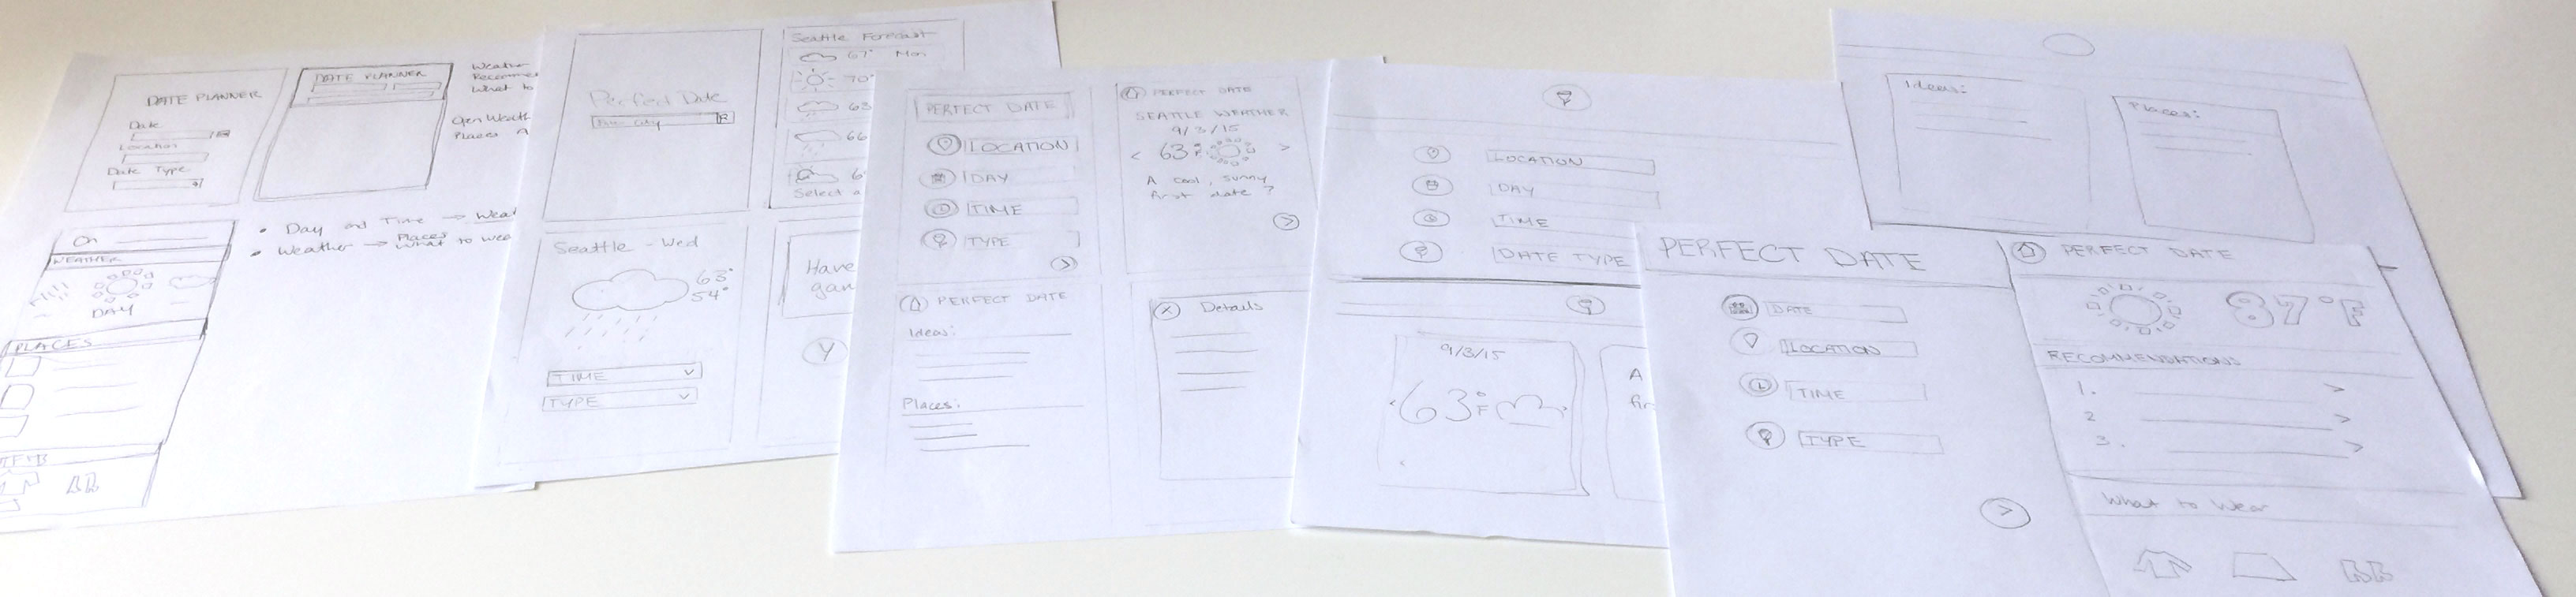 DATE PLANNER
Date
Location
Date Type
DATE PLANNER
Weather
What to
Open Weath
Places
• Day and Time → Wea
• Weather → Places
What to wea
On
WEATHER
DAY
PLACES
Perfect Date
City
Seattle Forecast
67° Mon
70°
63
66
6
Select a
Seattle - Wed
63°
54°
TIME
TYPE
Have
gam
Y
PERFECT DATE
LOCATION
DAY
TIME
TYPE
>
PERFECT DATE
SEATTLE WEATHER
9/3/15
< 63°F >
A cool, sunny
first date?
>
PERFECT DATE
Ideas:
Places:
X Details
LOCATION
DAY
TIME
DATE TYPE
9/3/15
63°F
A
fir
Ideas:
Places:
PERFECT DATE
DATE
LOCATION
TIME
TYPE
>
PERFECT DATE
87°F
RECOMMENDATIONS
1. >
2 >
3. >
What to Wear